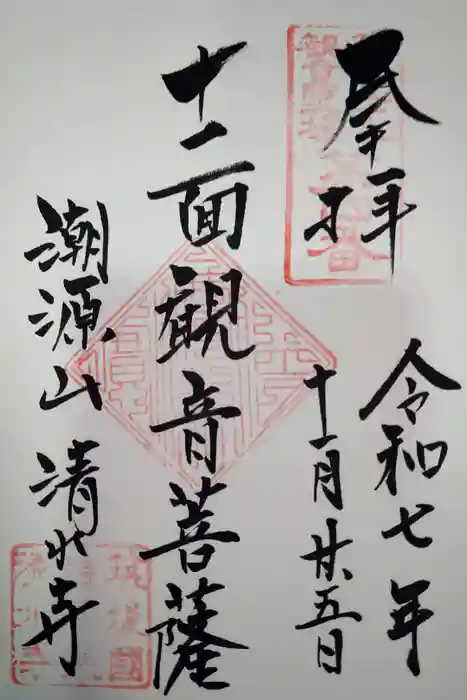 奉拝
令和七年
十一月廿五日
十二面観音菩薩
潮源山 清水寺